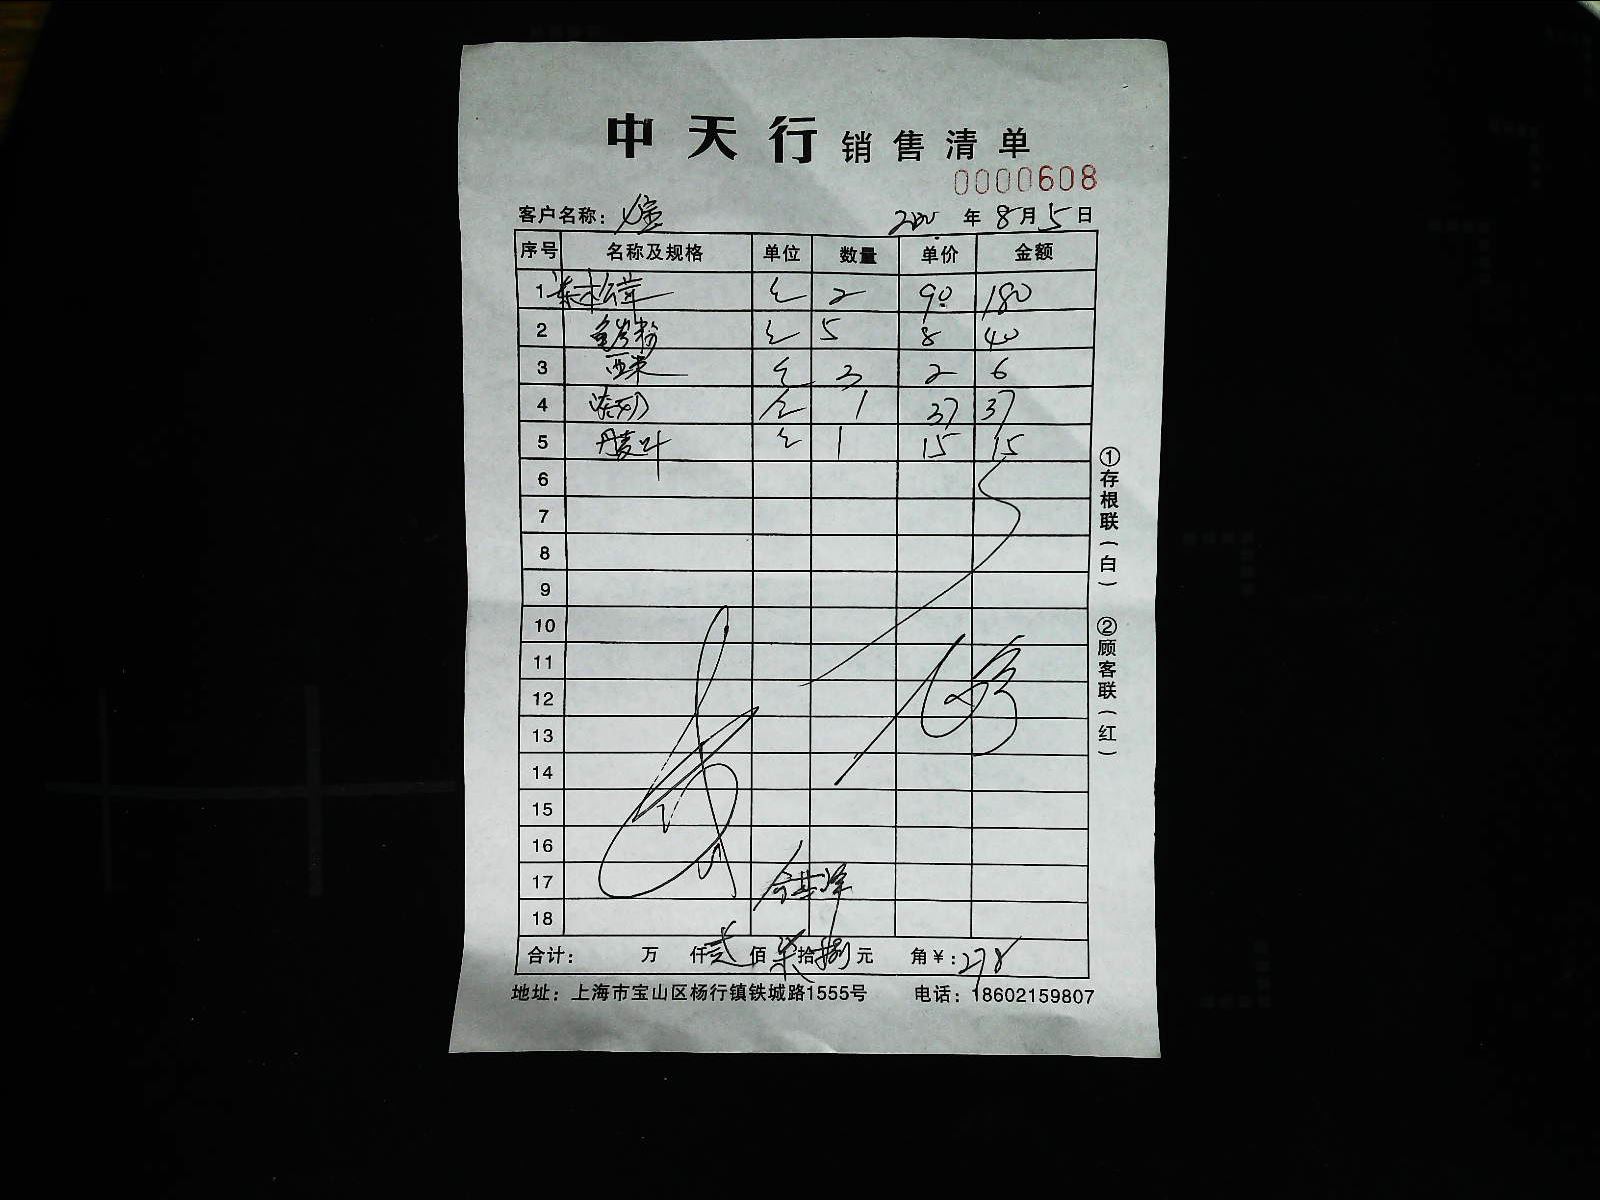 中天行销售清单
0000608
客户名称：
年 8月5日
序号 名称及规格 单位 数量 单价 金额
1 2 90 180
2 粉 5 8 40
3 西米 3 2 6
4 1 37 37
5 1 15 15
6
7
8
9
10
11
12
13
14
15
16
17
18
合计： 万 仟贰佰柒拾捌元 角￥:278
地址：上海市宝山区杨行镇铁城路1555号 电话：18602159807
①存根联（白） ②顾客联（红）